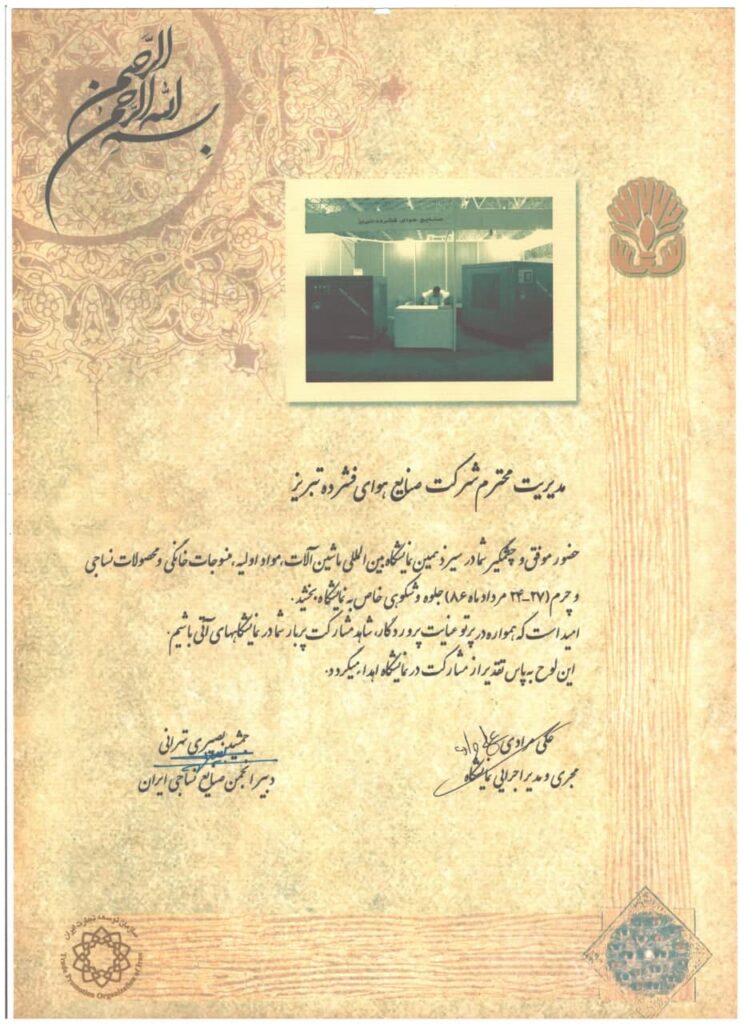 بسم الله الرحمن الرحیم
صنایع هوای فشرده تبریز
مدیریت محترم شرکت صنایع هوای فشرده تبریز
حضور موفق و چشمگیر شما در سیزدهمین نمایشگاه بین المللی ماشین آلات، مواد اولیه، منسوجات خانگی و محصولات نساجی
و چرم (۲۷-۲۴ مرداد ماه ۸۶) جلوه و شکوهی خاص به نمایشگاه بخشید.
امید است که همواره در پرتو عنایت پروردگار، شاهد مشارکت پربار شما در نمایشگاههای آتی باشیم.
این لوح به پاس تقدیر از مشارکت در نمایشگاه اهداء میگردد.
علی مرادی
مجری و مدیر اجرایی نمایشگاه
جمشید بصیری تهرانی
دبیر انجمن صنایع نساجی ایران
سازمان توسعه تجارت ایران
Trade Promotion Organization of Iran